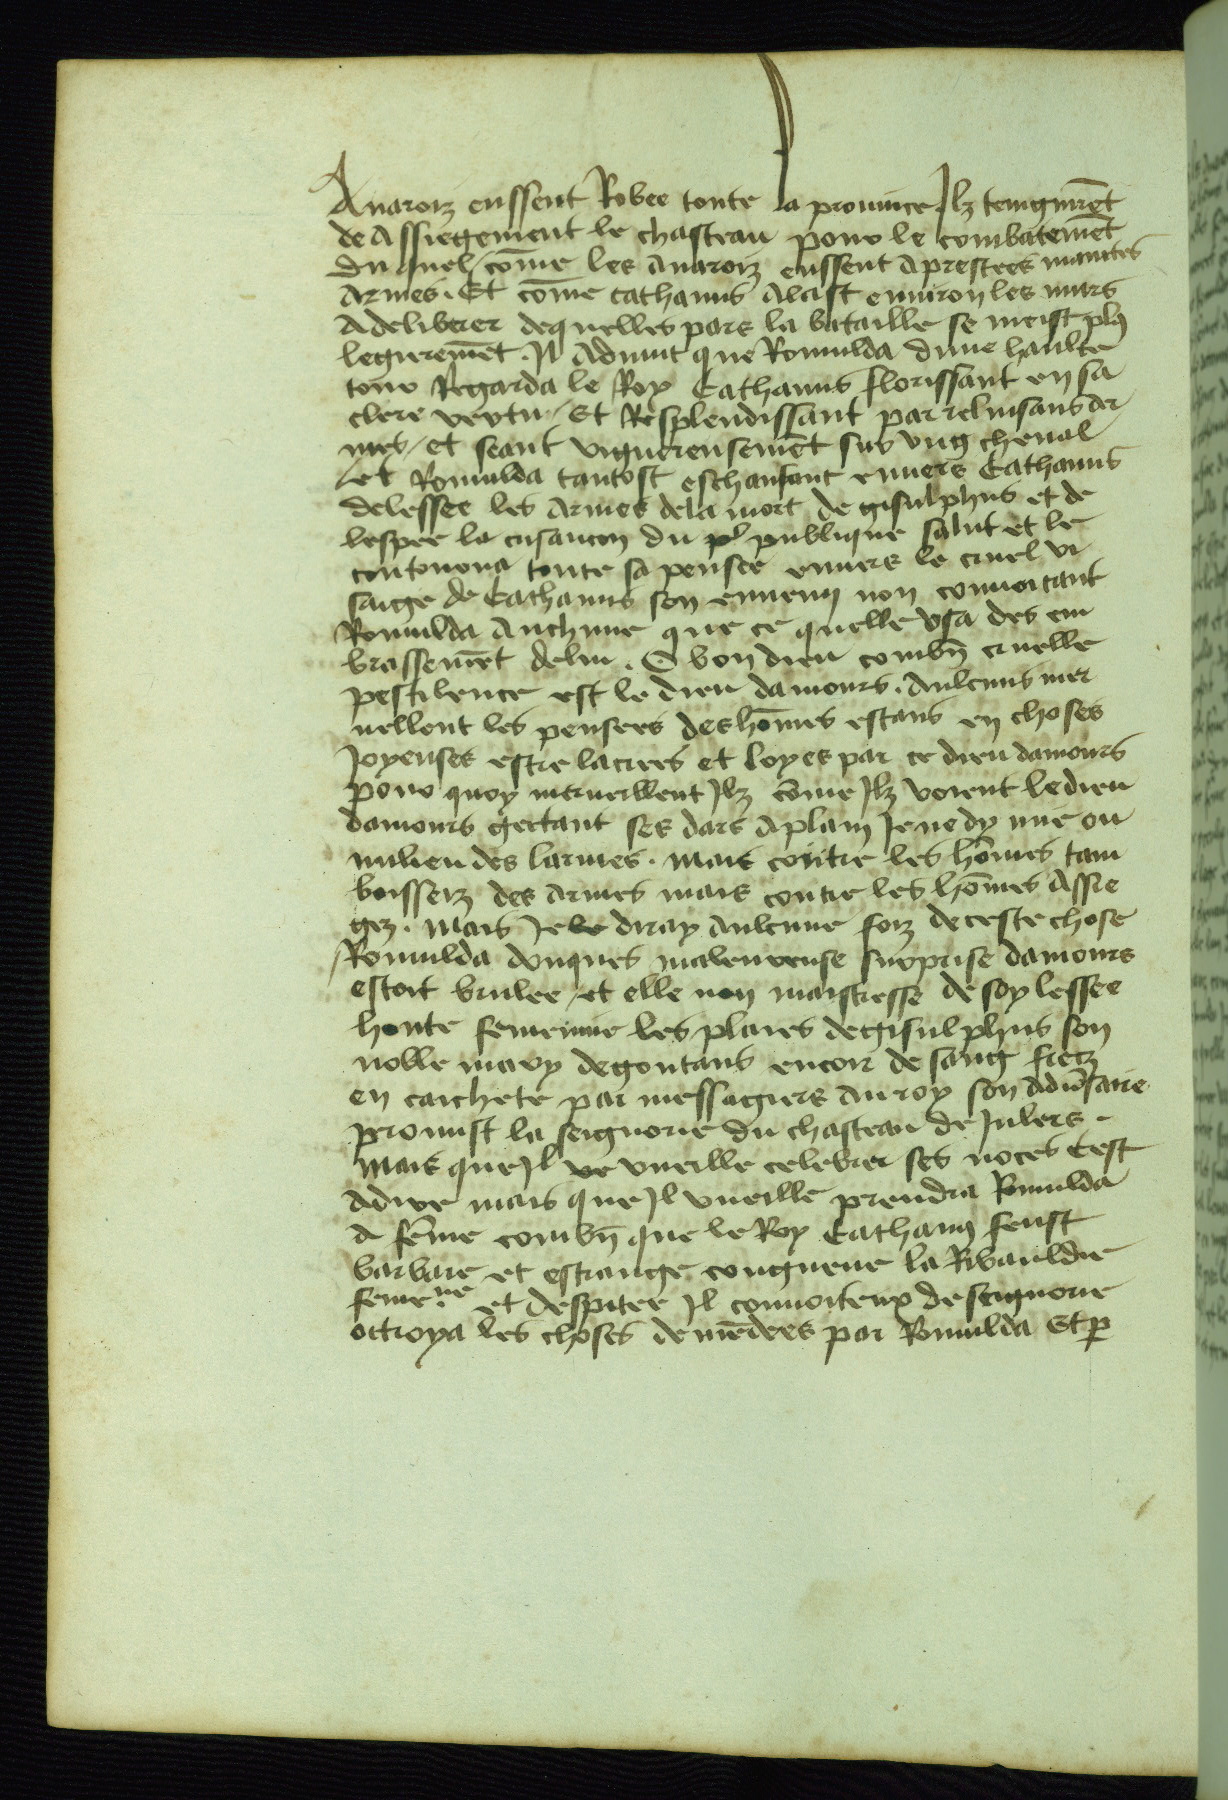 Avaroiz eussent Robee toute la province Jlz ceingnirēt
de Assiegement le chasteau pour le combatemēt
du quel / cōme les avaroiz eussent Aprestees maintes
Armes . Et cōme cathanus Alast environ les murs
A deliberer dequelles pars la bataille se meist plꝰ
legieremēt . Il Advint que Romulda dune haulte
tour Regarda le Roy Cathanus florissant en sa
clere vertu / Et Resplendissant par reluisans ar
mes / et seant viguereusemēt sus ung cheval
/ et Romulda tantost eschaufant envers Cathanus
delessee les Armes dela mort de gisulphus et de
lespee la cusancon du publique salut et le
contourna toute sa pensee envers le cruel vi
saige de Cathanus son ennemy non convoitant
Romulda Aultrune que ce quelle usa des em
brassemēt delui . O bon dieu combn̄ cruelle
pestilence est le dieu damours . Aulcuns mer
vellent les pensees des hōmes estans en choses
Joyeuses estre laciees et loyes par ce dieu damours
pour quoy merveillent Jlz cōme Jlz voient le dieu
damours gectant ses dars A plain Je ne dy mie ou
milieu des larmes . mais contre les hōmes tam
boissez des armes mais contre les hōmes Assie
gez . Mais Je le diray Aulcune foiz de ceste chose
/ Romulda donques maleureuse surprise damours
estoit brulee / et elle non maistresse de soy lessee
honte femenine les plaies degisulphus son
noble mary degoutans encor de sang fretz
en caichete par messagiers au roy son adv̄saire
promist la seignorie du chasteau de Julers .
Mais que Jl ve vueille celebrer ses noces Cest
Adire mais que Jl vueille prendra Romulda
A fēme combn̄ que le Roy Cathanꝰ feust
barbare et estrange congneue la Ribauldie
feme.ne et despitee Jl convoiteux de seignorie
octroya les choses demēdees par Romulda Et ꝑ